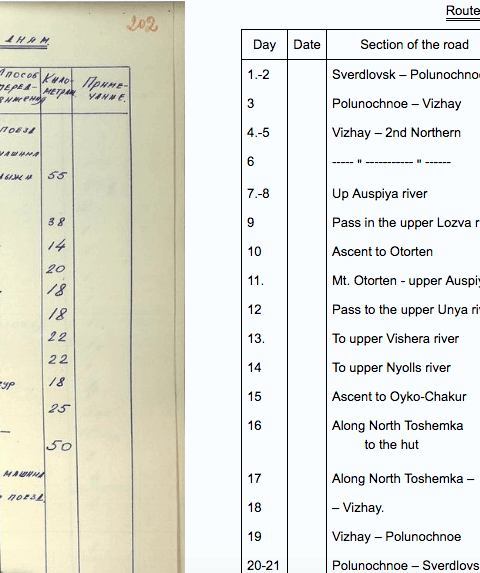 202
ДНАМ
Способ перед- вижения
Кило- метраж
Приме- чание.
поезд
машина
лыжи 55
38
14
20
18
18
22
22
18
25
—
50
машина
поезд.
Route
Day Date Section of the road
1.-2 Sverdlovsk – Polunochno
3 Polunochnoe – Vizhay
4.-5 Vizhay – 2nd Northern
6 ----- " ----------- " ------
7.-8 Up Auspiya river
9 Pass in the upper Lozva r
10 Ascent to Otorten
11. Mt. Otorten - upper Auspiy
12 Pass to the upper Unya riv
13. To upper Vishera river
14 To upper Nyolls river
15 Ascent to Oyko-Chakur
16 Along North Toshemka
to the hut
17 Along North Toshemka –
18 – Vizhay.
19 Vizhay – Polunochnoe
20-21 Polunochnoe – Sverdlovs